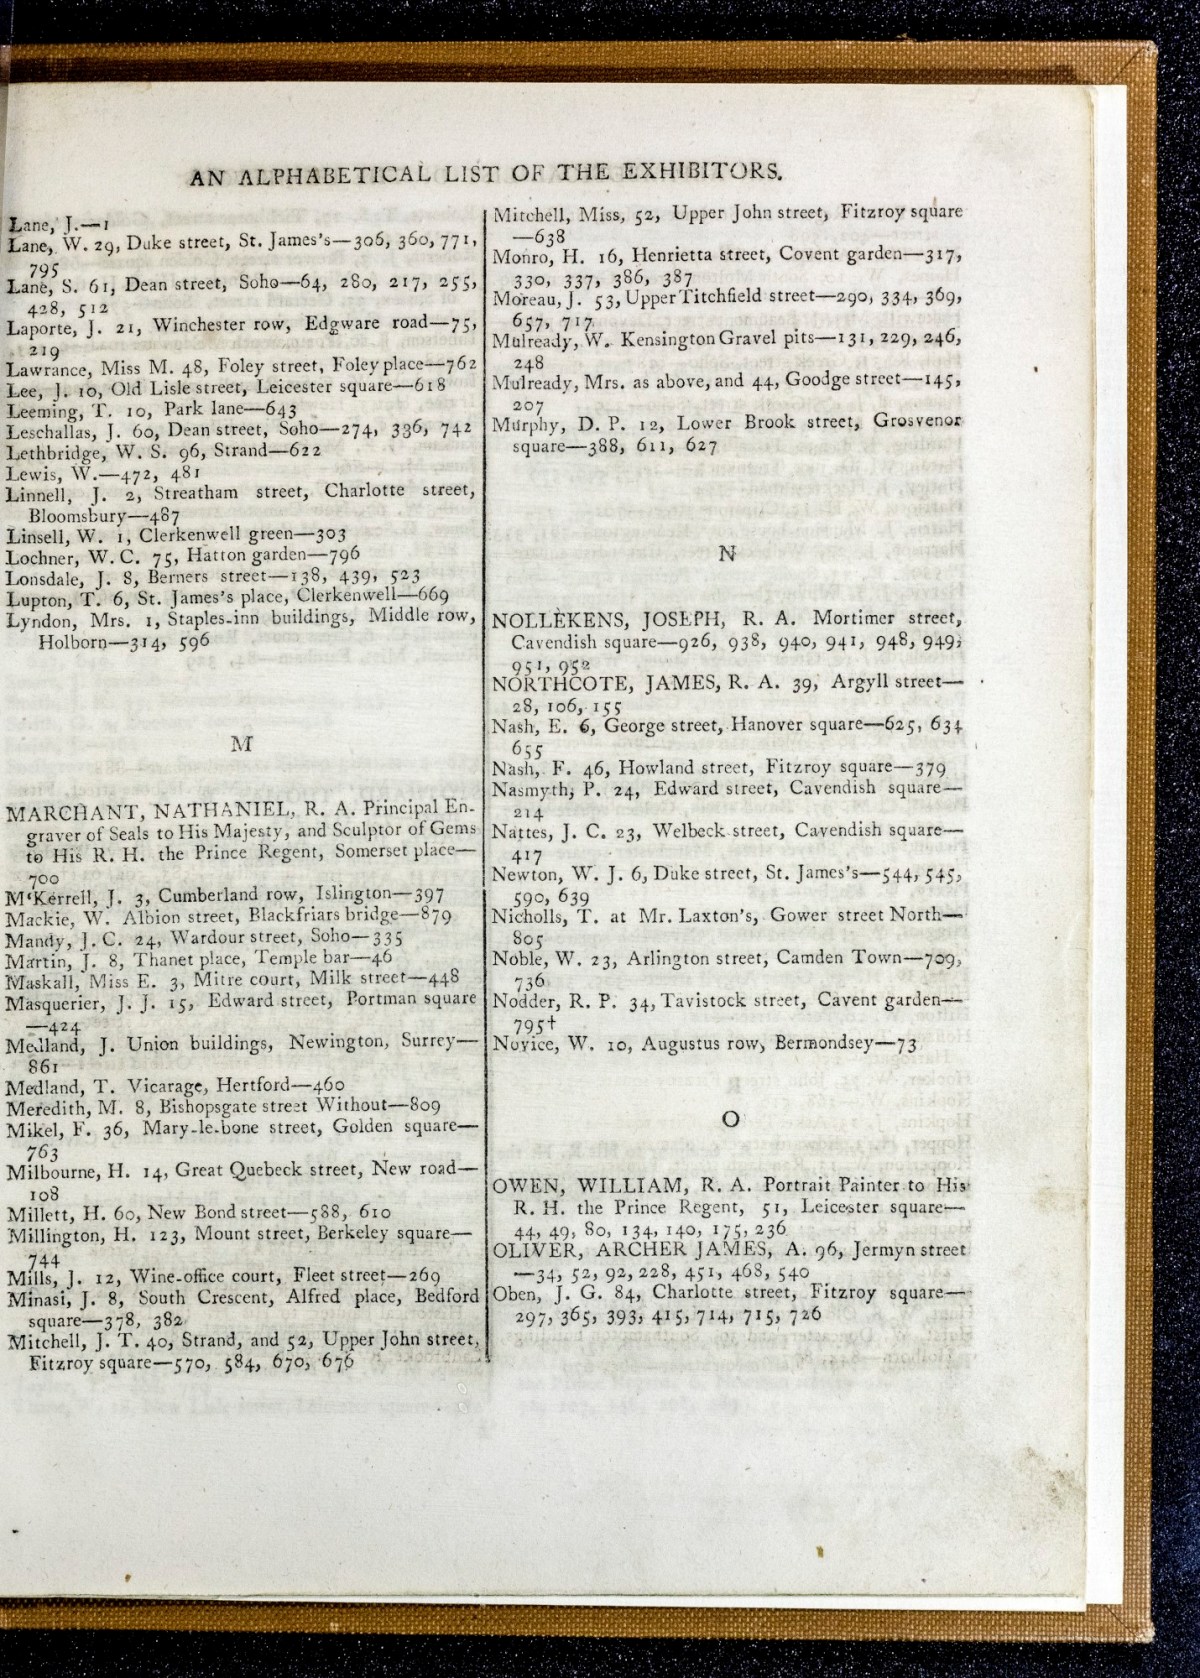 AN ALPHABETICAL LIST OF THE EXHIBITORS.
Lane, J.—1
Lane, W. 29, Duke street, St. James's—306, 360, 771,
795
Lane, S. 61, Dean street, Soho—64, 280, 217, 255,
428, 512
Laporte, J. 21, Winchester row, Edgware road—75,
219
Lawrance, Miss M. 48, Foley street, Foley place—762
Lee, J. 10, Old Lisle street, Leicester square—618
Leeming, T. 10, Park lane—643
Leschallas, J. 60, Dean street, Soho—274, 336, 742
Lethbridge, W. S. 96, Strand—622
Lewis, W.—472, 481
Linnell, J. 2, Streatham street, Charlotte street,
Bloomsbury—487
Linsell, W. 1, Clerkenwell green—303
Lochner, W. C. 75, Hatton garden—796
Lonsdale, J. 8, Berners street—138, 439, 523
Lupton, T. 6, St. James's place, Clerkenwell—669
Lyndon, Mrs. 1, Staples-inn buildings, Middle row,
Holborn—314, 596
M
MARCHANT, NATHANIEL, R. A. Principal En-
graver of Seals to His Majesty, and Sculptor of Gems
to His R. H. the Prince Regent, Somerset place—
700
M'Kerrell, J. 3, Cumberland row, Islington—397
Mackie, W. Albion street, Blackfriars bridge—879
Mandy, J. C. 24, Wardour street, Soho—335
Martin, J. 8, Thanet place, Temple bar—46
Maskall, Miss E. 3, Mitre court, Milk street—448
Masquerier, J. J. 15, Edward street, Portman square
—424
Medland, J. Union buildings, Newington, Surrey—
861
Medland, T. Vicarage, Hertford—460
Meredith, M. 8, Bishopsgate street Without—809
Mikel, F. 36, Mary-le-bone street, Golden square—
763
Milbourne, H. 14, Great Quebeck street, New road—
108
Millett, H. 60, New Bond street—588, 610
Millington, H. 123, Mount street, Berkeley square—
744
Mills, J. 12, Wine-office court, Fleet street—269
Minasi, J. 8, South Crescent, Alfred place, Bedford
square—378, 382
Mitchell, J. T. 40, Strand, and 52, Upper John street,
Fitzroy square—570, 584, 670, 676
Mitchell, Miss, 52, Upper John street, Fitzroy square
—638
Monro, H. 16, Henrietta street, Covent garden—317,
330, 337, 386, 387
Moreau, J. 53, Upper Titchfield street—290, 334, 369,
657, 717
Mulready, W. Kensington Gravel pits—131, 229, 246,
248
Mulready, Mrs. as above, and 44, Goodge street—145,
207
Murphy, D. P. 12, Lower Brook street, Grosvenor
square—388, 611, 627
N
NOLLEKENS, JOSEPH, R. A. Mortimer street,
Cavendish square—926, 938, 940, 941, 948, 949,
951, 952
NORTHCOTE, JAMES, R. A. 39, Argyll street—
28, 106, 155
Nash, E. 6, George street, Hanover square—625, 634
655
Nash, F. 46, Howland street, Fitzroy square—379
Nasmyth, P. 24, Edward street, Cavendish square—
214
Nattes, J. C. 23, Welbeck street, Cavendish square—
417
Newton, W. J. 6, Duke street, St. James's—544, 545,
590, 639
Nicholls, T. at Mr. Laxton's, Gower street North—
805
Noble, W. 23, Arlington street, Camden Town—709,
736
Nodder, R. P. 34, Tavistock street, Cavent garden—
795†
Novice, W. 10, Augustus row, Bermondsey—73
O
OWEN, WILLIAM, R. A. Portrait Painter to His
R. H. the Prince Regent, 51, Leicester square—
44, 49, 80, 134, 140, 175, 236
OLIVER, ARCHER JAMES, A. 96, Jermyn street
—34, 52, 92, 228, 451, 468, 540
Oben, J. G. 84, Charlotte street, Fitzroy square—
297, 365, 393, 415, 714, 715, 726